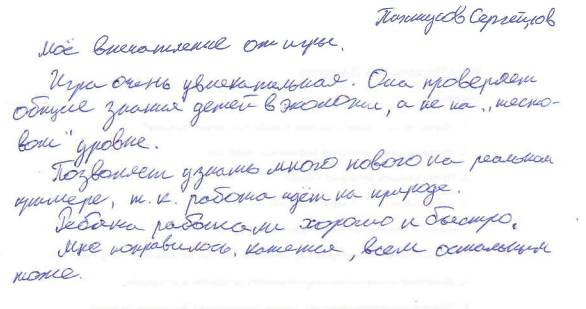 Моё впечатление от игры.
Игра очень увлекательная. Она проверяет
общие знания детей в экологии, а не на „тесто-
вом" уровне.
Позволяет узнать много нового на реальном
примере, т.к. работа идёт на природе.
Ребята работали хорошо и быстро.
Мне понравилось, кажется, всем остальным
тоже.